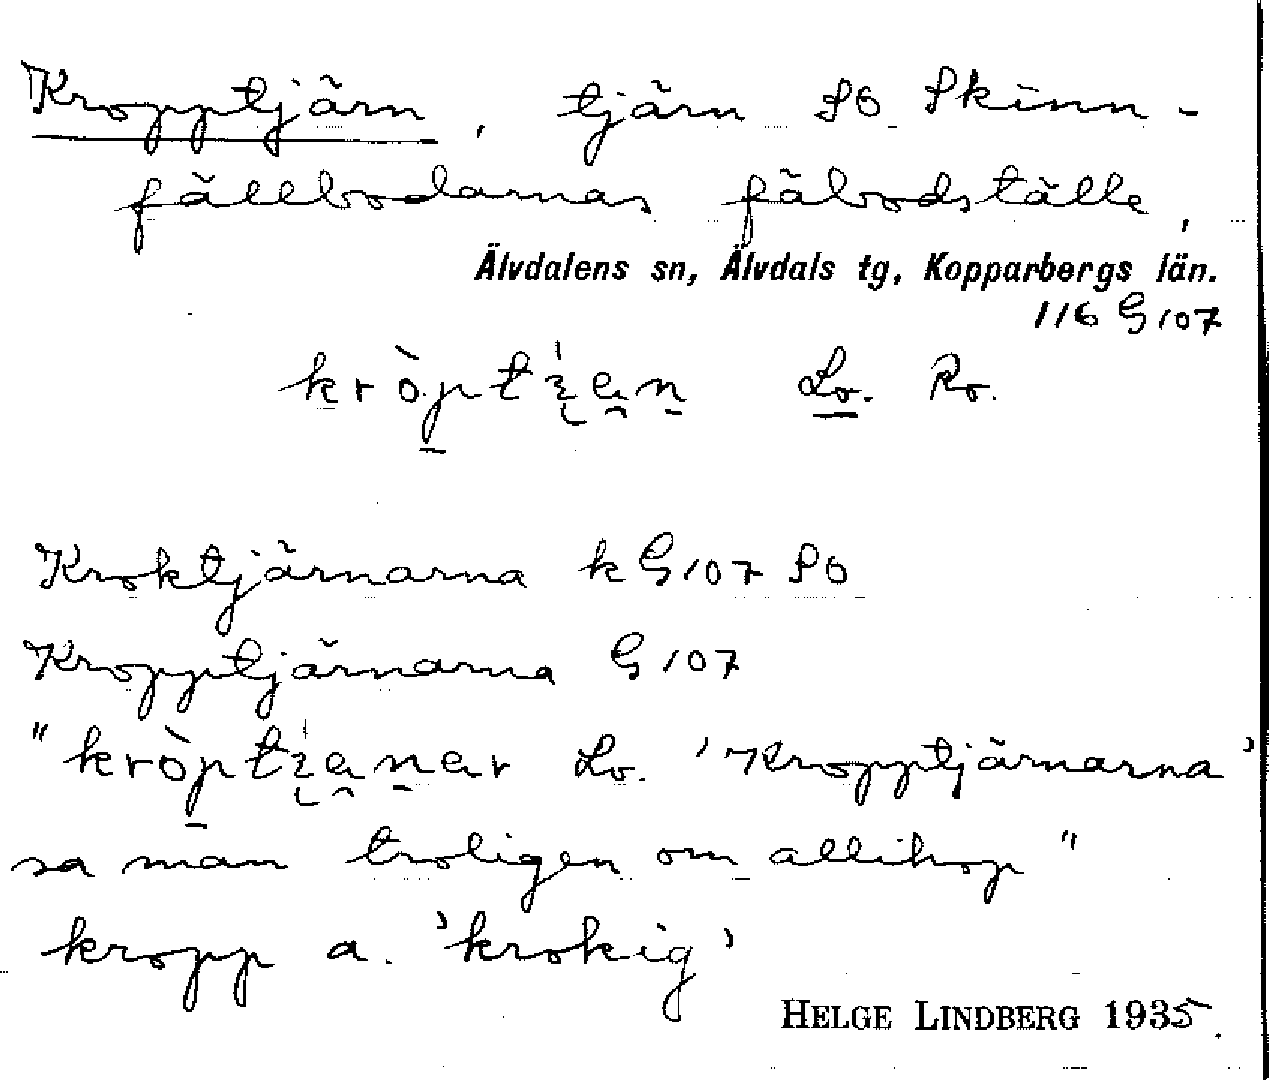 Kropptjärn, tjärn SO Skinn-
fällbodarnas fäbodställe,
Älvdalens sn, Älvdals tg, Kopparbergs län.
116 G 107
Lo. Ro.
Kroktjärnarna k G 107 SO
Kropptjärnarna G 107
" Lo. 'Kropptjärnarna'
sa man troligen om allihop"
kropp a. 'krokig'
HELGE LINDBERG 1935.